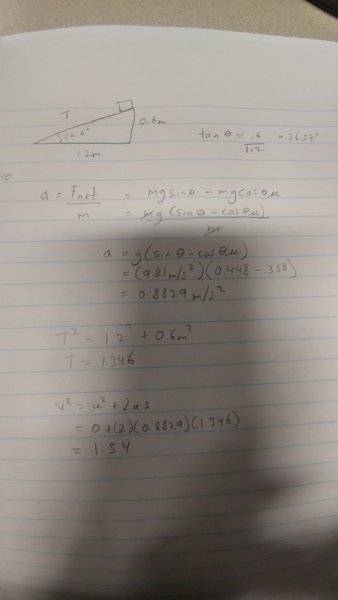 T
0.6m
26.6°
12m
tan θ = .6 = 26.57°
1.2
a = Fnet = mg sin θ - mg cos θ μ
m = mg (sin θ - cos θ μ)
m
a = g (sin θ - cos θ μ)
= (9.81 m/s²) (0.448 - 358)
= 0.8829 m/s²
T² = 12² + 06m²
T = 1346
V² = u² + 2as
= 0 + (2)(0.8829)(1.346)
= 1.54